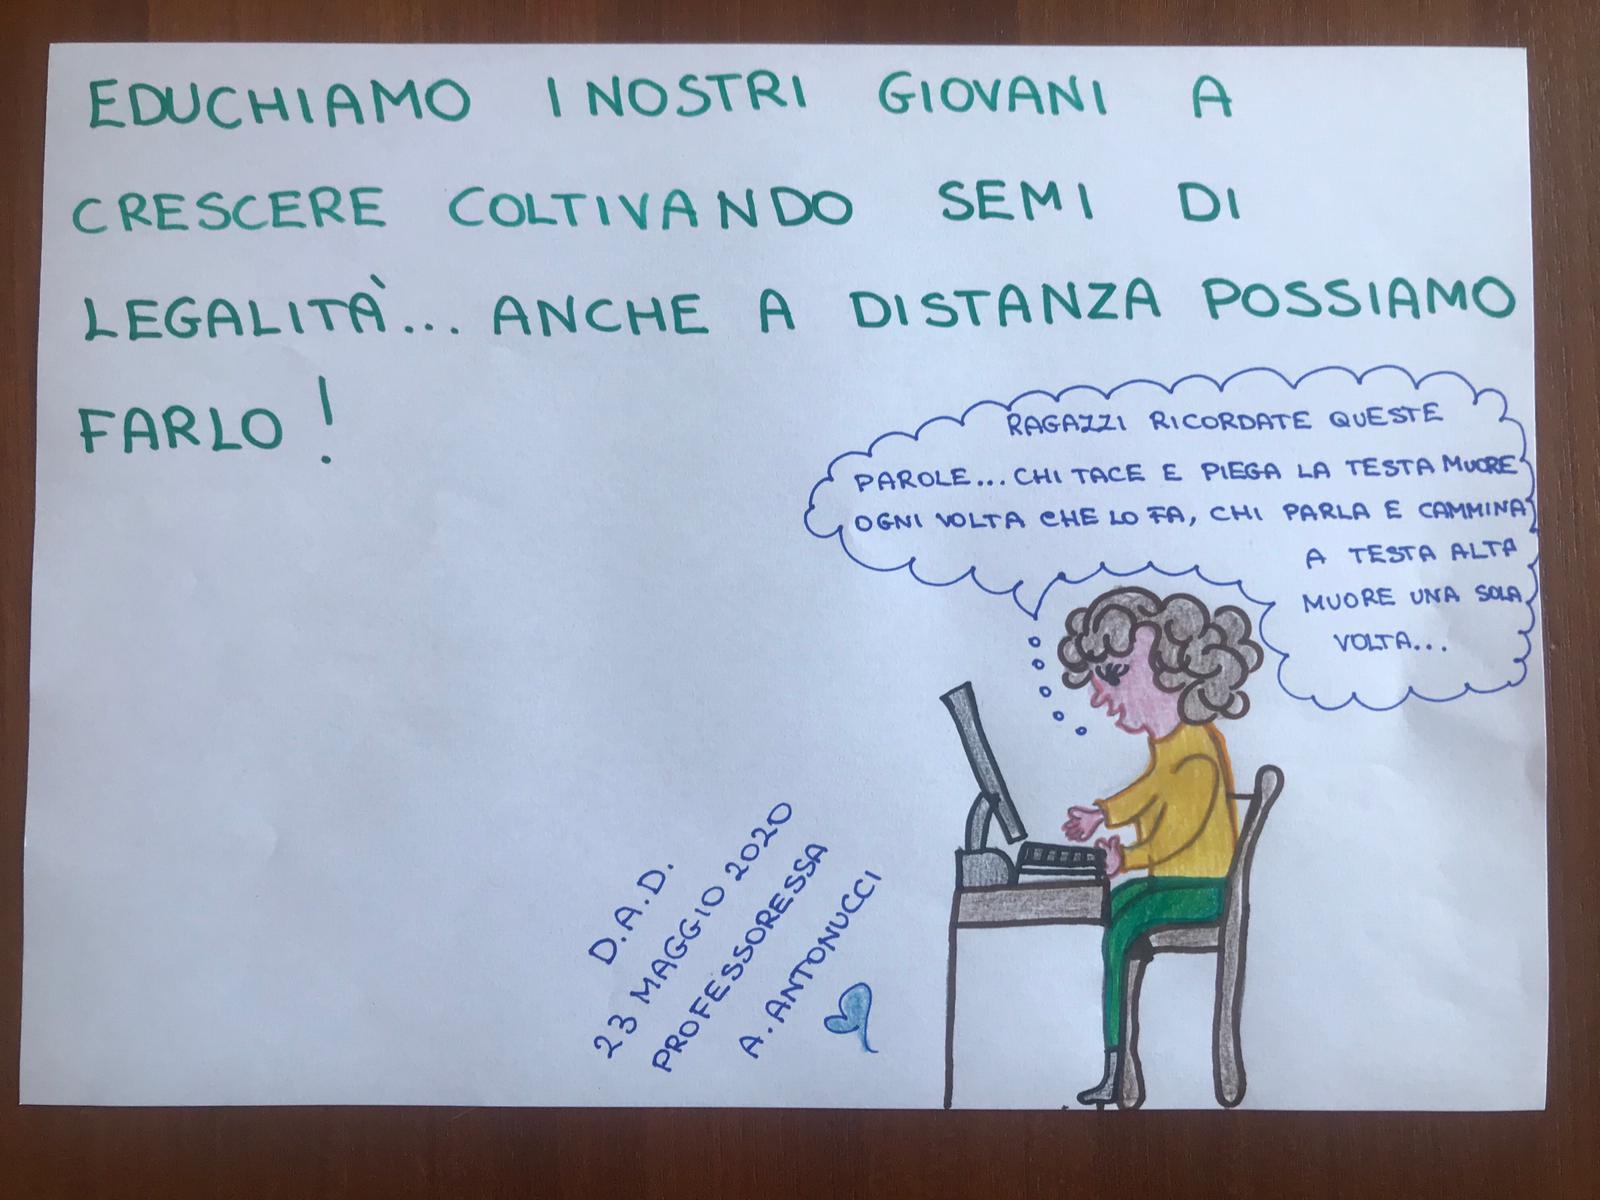 EDUCHIAMO I NOSTRI GIOVANI A
CRESCERE COLTIVANDO SEMI DI
LEGALITÀ... ANCHE A DISTANZA POSSIAMO
FARLO!
RAGAZZI RICORDATE QUESTE
PAROLE... CHI TACE E PIEGA LA TESTA MUORE
OGNI VOLTA CHE LO FA, CHI PARLA E CAMMINA
A TESTA ALTA
MUORE UNA SOLA
VOLTA...
D.A.D.
23 MAGGIO 2020
PROFESSORESSA
A. ANTONUCCI